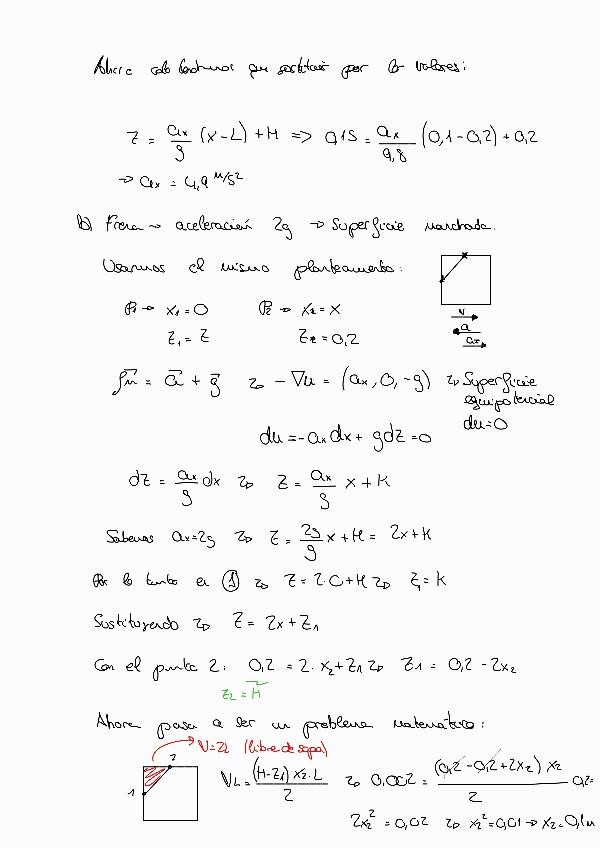 Ahora solo tendremos que sustituir por los valores:
Z = ax/g (x-L) + H => 0,15 = ax/9,8 (0,1-0,2) + 0,2
→ ax = 4,9 m/s²
b) Frena → aceleración 2g → Superficie marchada.
Usamos el mismo planteamiento:
P1 → x1 = 0 P2 → x2 = x
z1 = z z2 = 0,2
v
a
ax
fm = a + g → -∇u = (ax, 0, -g) → Superficie
equipotencial
du = -ax dx + g dz = 0 du = 0
dz = ax/g dx → z = ax/g x + K
Sabemos ax = 2g → z = 2g/g x + K = 2x + K
Por lo tanto en 1 → z = 2·0 + K → z1 = K
Sustituyendo → z = 2x + z1
Con el punto 2: 0,2 = 2·x2 + z1 → z1 = 0,2 - 2x2
z2 = H
Ahora pasa a ser un problema matemático:
V = 2L (libre de sopa)
2
1
VL = (H-z1) x2·L / 2 → 0,002 = (0,2 - 0,2 + 2x2) x2 / 2 0,2=
2x2² = 0,02 → x2² = 0,01 → x2 = 0,1m